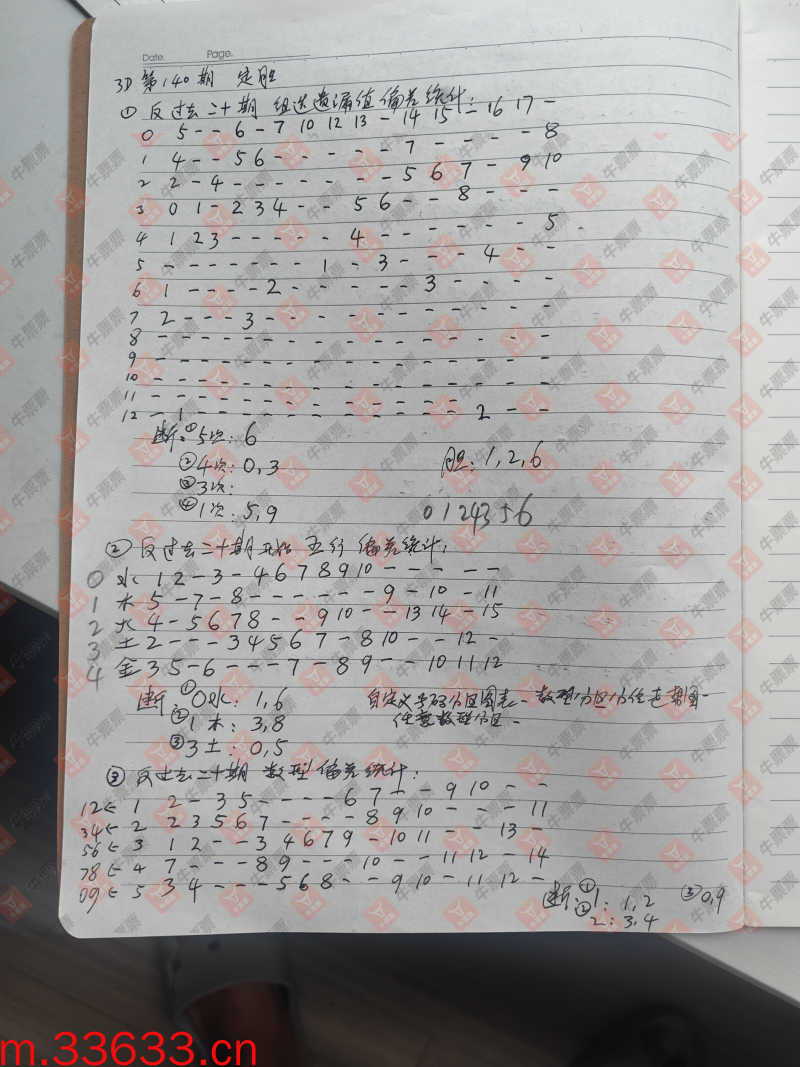 Date. Page.
3D 第140期 定胆
① 反过去二十期 组选遗漏值偏差统计:
0 5 - - 6 - 7 10 12 13 - 14 15 - 16 17 -
1 4 - - 5 6 - - - - - - 7 - - - - 8
2 2 - 4 - - - - - - - 5 6 7 - 9 10
3 0 1 - 2 3 4 - - 5 6 - - 8 - - -
4 1 2 3 - - - - - 4 - - - - - - - 5
5 - - - - - - - 1 - 3 - - - 4 - -
6 1 - - - - 2 - - - - - 3 - - - -
7 2 - - - 3 - - - - - - - - - - -
8 - - - - - - - - - - - - - - - -
9 - - - - - - - - - - - - - - - -
10 - - - - - - - - - - - - - - - -
11 - - - - - - - - - - - - -
12 - 1 - - - - - - - - - - - 2 - -
断:①5次: 6
②4次: 0,3
胆: 1,2,6
③3次:
④1次: 5,9
0124356
② 反过去二十期开始 五行 偏差统计:
0 水 1 2 - 3 - 4 6 7 8 9 10 - - - - -
1 木 5 - 7 - 8 - - - - - - 9 - 10 - 11
2 火 4 - 5 6 7 8 - - 9 10 - - 13 14 - 15
3 土 2 - - - 3 4 5 6 7 - 8 10 - - 12 -
4 金 3 5 - 6 - - - 7 - 8 9 - - 10 11 12
断:①0水: 1,6
自定义号码分区图表-数型分区分任走势图-
②1木: 3,8
任意数型分区-
③3土: 0,5
③ 反过去二十期 数型偏差统计:
12← 1 2 - 3 5 - - - - 6 7 - - 9 10 - -
34← 2 2 3 5 6 7 - - - - 8 9 10 - - - 11
56← 3 1 2 - - 3 4 6 7 9 - 10 11 - - 13 -
78← 4 7 - - - 8 9 - - - 10 - - 11 12 - 14
09← 5 3 4 - - - 5 6 8 - - 9 10 - 11 12 -
断:①1: 1,2 ③0,9
②2: 3,4
m.33633.cn